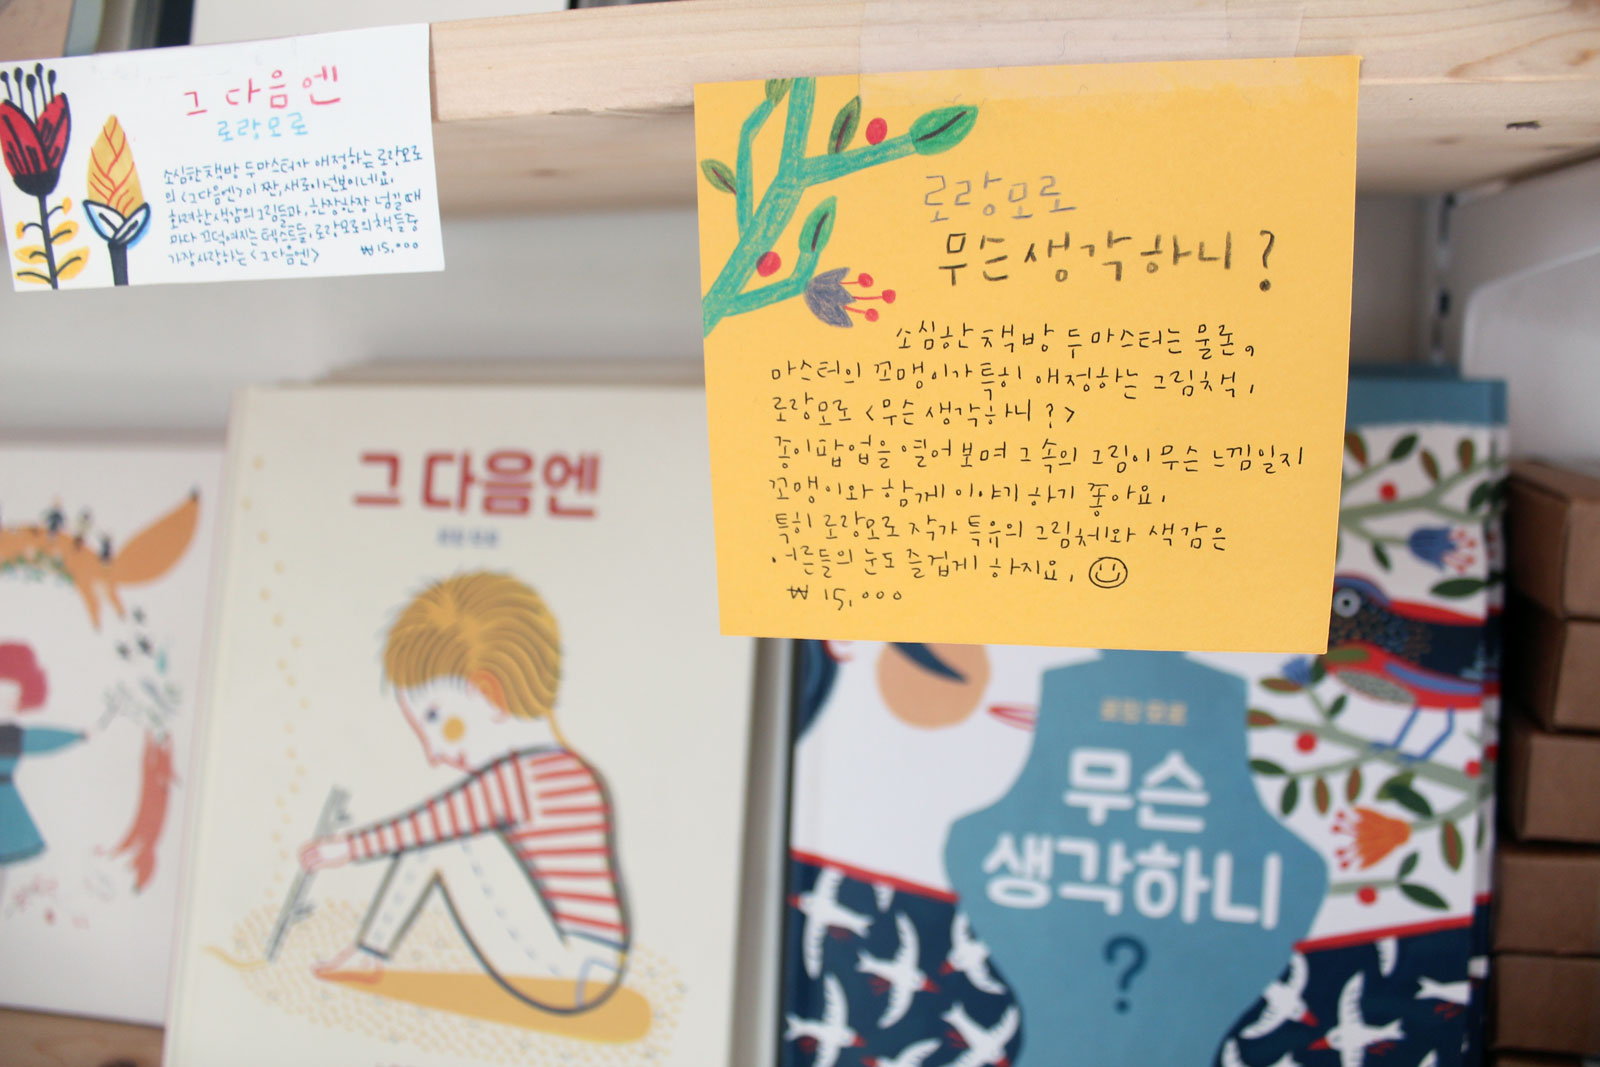 그 다음엔
로랑모로
소심한책방 두마스터가 애정하는 로랑모로
의 <그다음엔>이 짠, 새로이 선보이네요.
화려한 색감의 그림들과, 한장한장 넘길 때
마다 끄덕여지는 텍스트들, 로랑모로의 책들중
가장 사랑하는 <그다음엔> ₩15,000
로랑모로
무슨 생각하니?
소심한 책방 두 마스터는 물론,
마스터의 꼬맹이가 특히 애정하는 그림책,
로랑모로 <무슨 생각하니?>
종이팝업을 열어보며 그 속의 그림이 무슨 느낌일지
꼬맹이와 함께 이야기 하기 좋아요.
특히 로랑모로 작가 특유의 그림체와 색감은
어른들의 눈도 즐겁게 하지요.
₩15,000
그 다음엔
로랑 모로
로랑 모로
무슨
생각하니
?